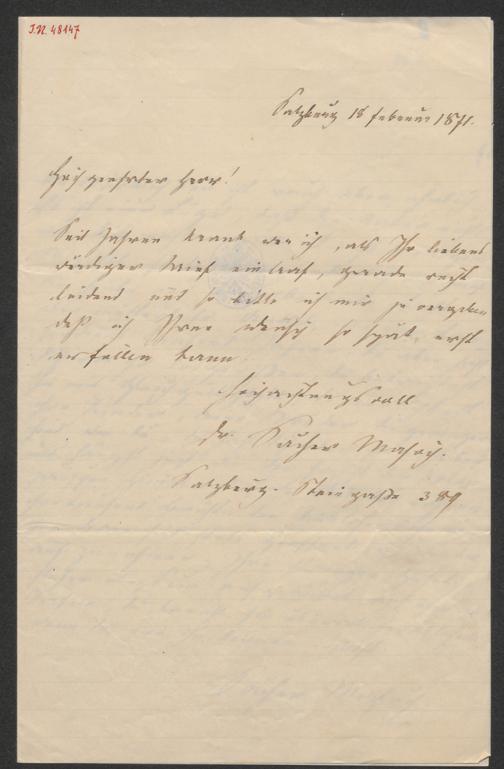 J.N. 48147
Salzburg 18 Februar 1871.
Hochgeehrter Herr!
Seit Jahren krank war ich, als Ihr liebens
würdiger Brief eintraf, gerade recht
leidend und so bitte ich mir zu vergeben
daß ich Ihren Wunsch so spät erst
erfüllen kann.
Hochachtungsvoll
Dr. Sacher Masoch.
Salzburg. Steingaße 389